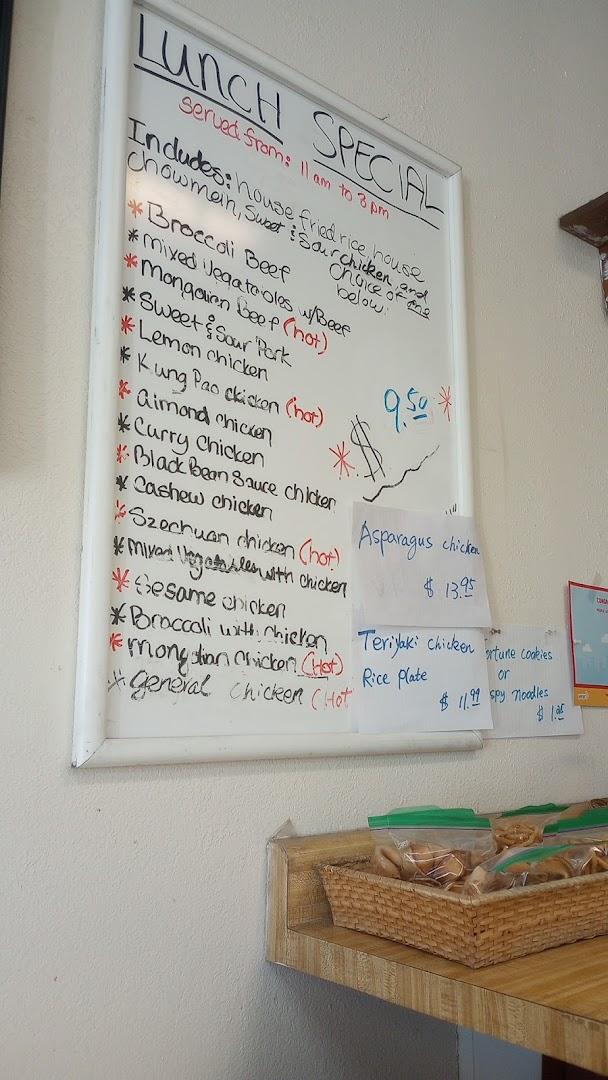 LUNCH SPECIAL
served from: 11 am to 3 pm
Includes: house fried rice house
chowmein, Sweet & Sour chicken, and
choice of one
below:
* Broccoli Beef
* mixed Vegatables w/Beef
* mongolian Beef (hot)
* Sweet & Sour Pork
* Lemon chicken
* Kung Pao chicken (hot)
* almond chicken
* Curry chicken
* Black Bean Sauce chicken
* Cashew chicken
* Szechuan chicken (hot)
* mixed Vegatables with chicken
* Sesame chicken
* Broccoli with chicken
* mongolian chicken (Hot)
* general chicken (Hot
9.50 *
* $
Asparagus chicken
$ 13.95
Teriyaki chicken
Rice Plate
$ 11.99
ortune cookies
or
spy noodles